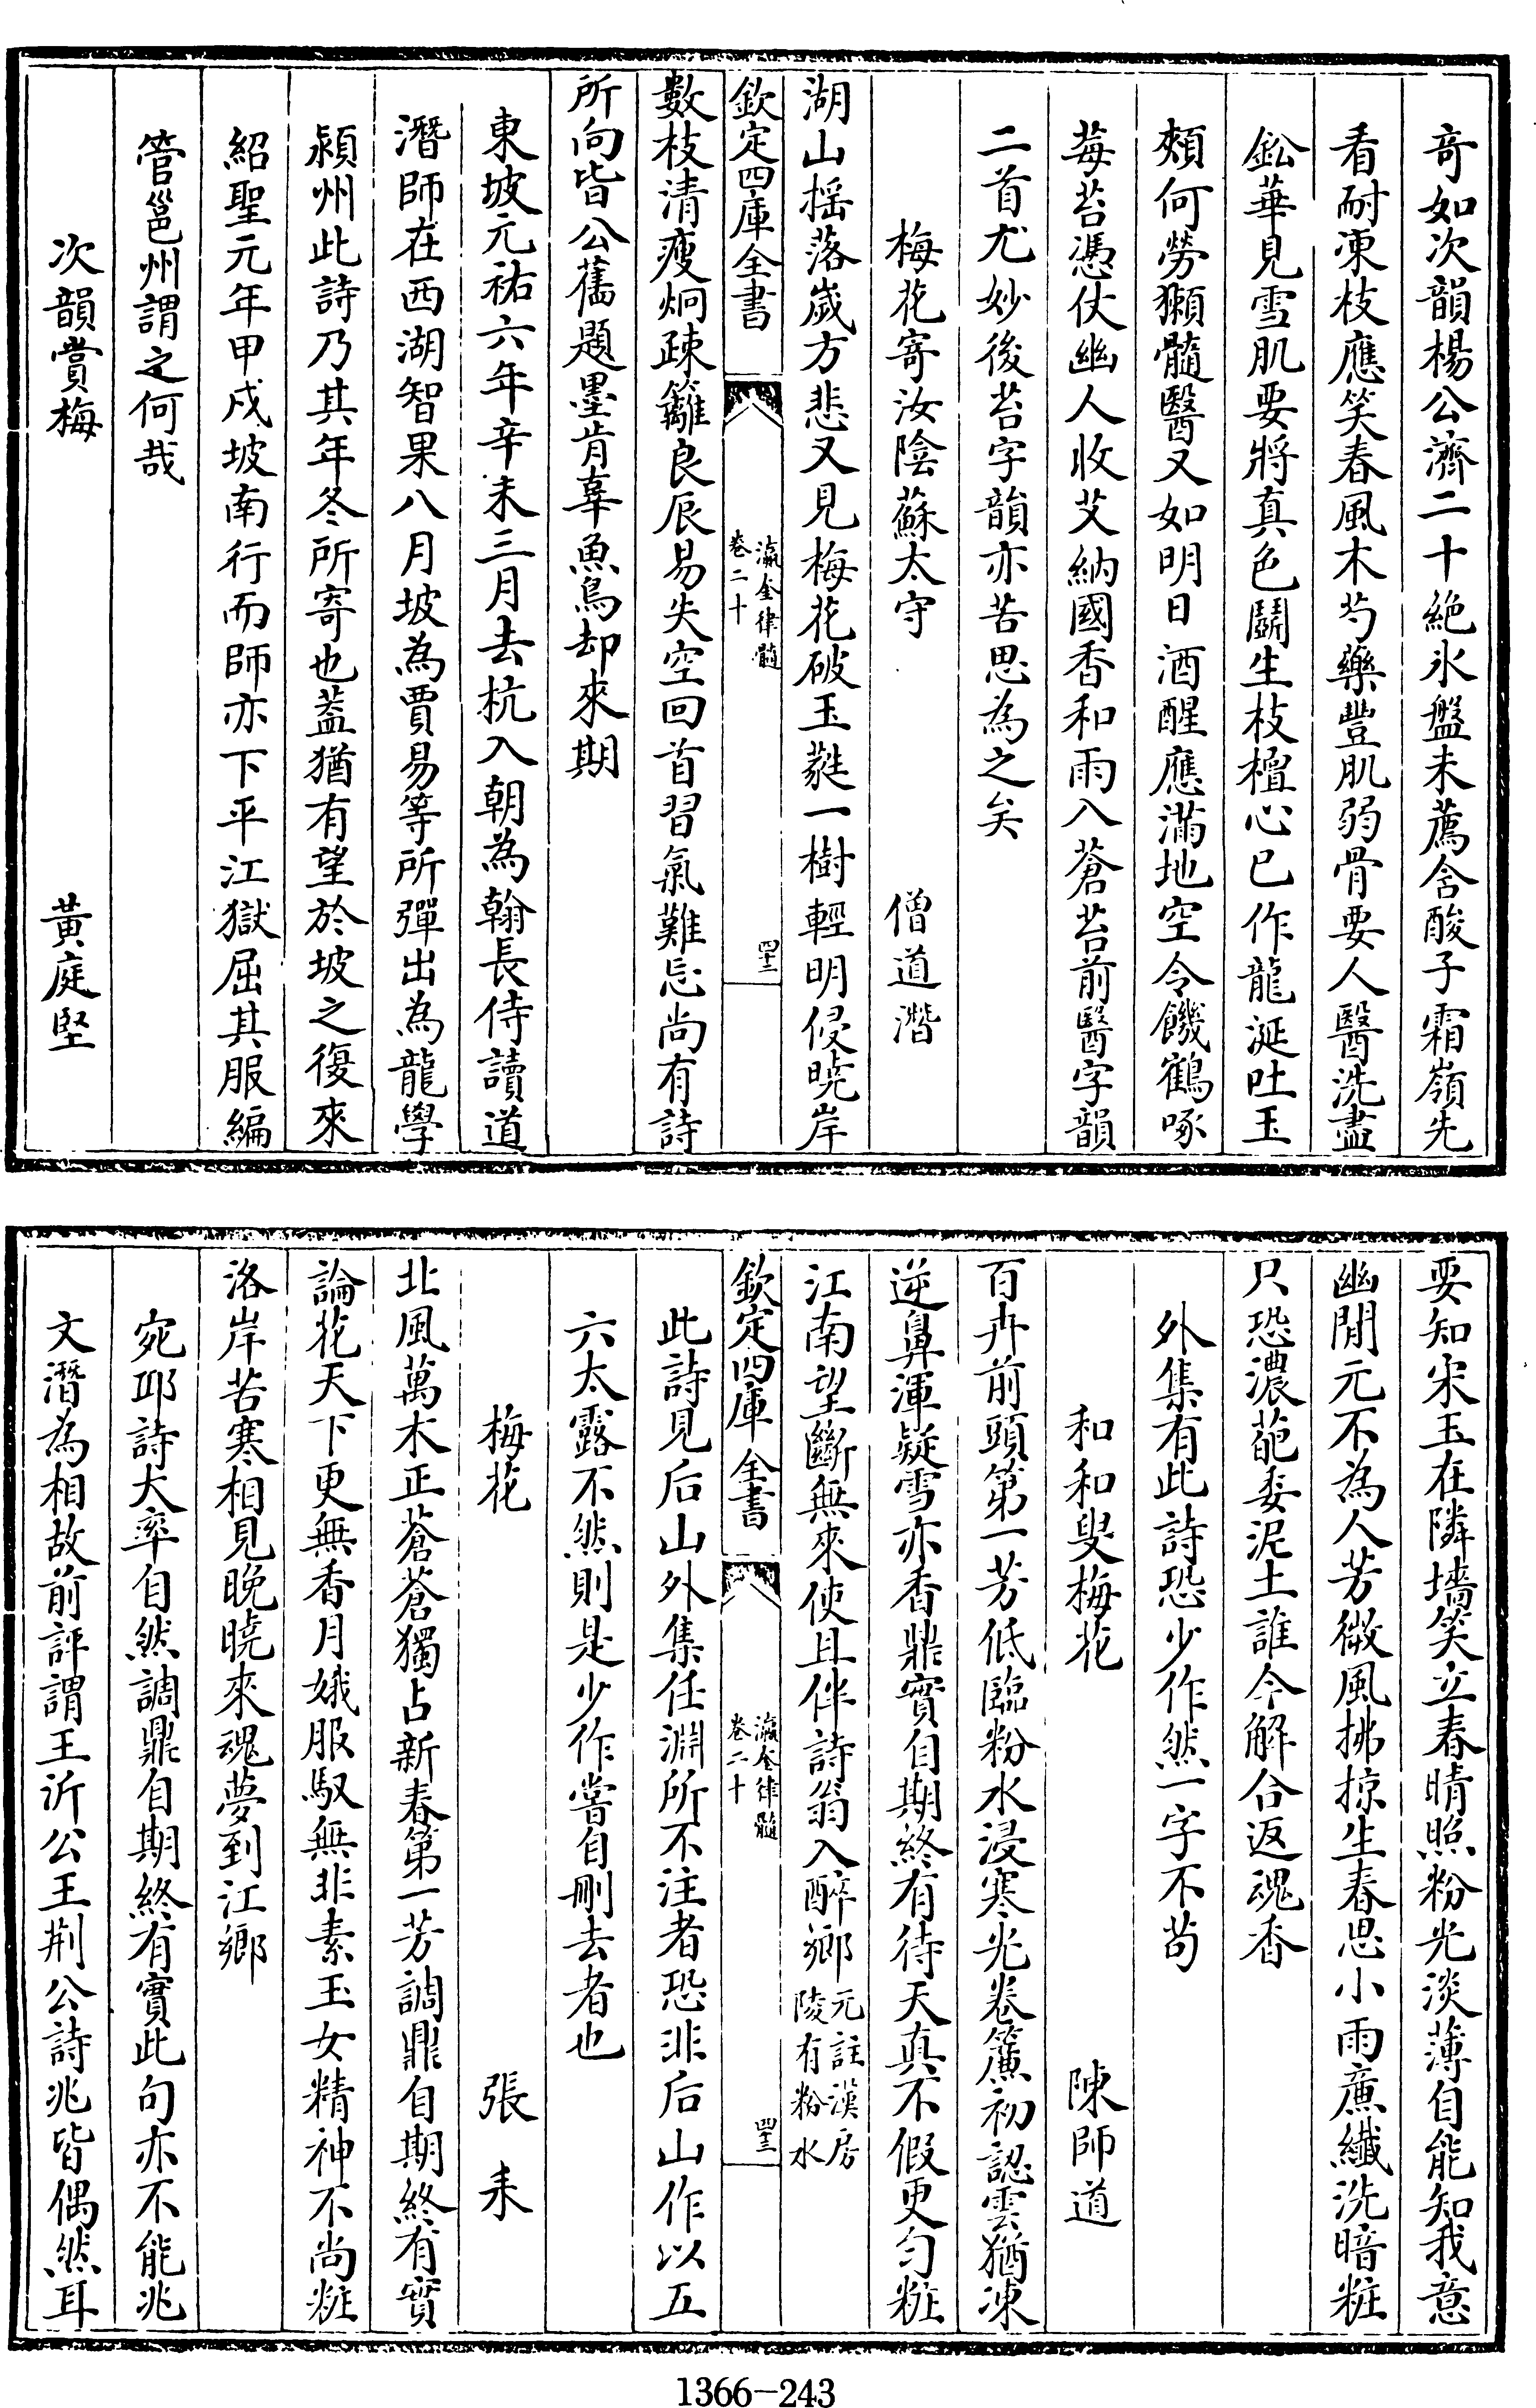 竒如次韻楊公濟二十絶氷盤未薦含酸子霜嶺先
看耐凍枝應笑春風木芍藥豐肌弱骨要人醫洗盡
鈆華見雪肌要將真色鬬生枝檀心已作龍涎吐玉
頰何勞獺髓醫又如明日酒醒應滿地空令饑鶴啄
莓苔憑仗幽人收艾納國香和雨入蒼苔前醫字韻
二首尤妙後苔字韻亦苦思為之矣
梅花寄汝陰蘇太守　僧道潛
湖山摇落嵗方悲又見梅花破玉蕤一樹輕明侵曉岸
欽定四庫全書　瀛奎律髓　卷二十　四十二
數枝清瘦炯疎籬良辰易失空回首習氣難忘尚有詩
所向皆公舊題墨肯辜魚鳥却來期
東坡元祐六年辛未三月去杭入朝為翰長侍讀道
潛師在西湖智果八月坡為賈易等所彈出為龍學
潁州此詩乃其年冬所寄也葢猶有望於坡之復來
紹聖元年甲戌坡南行而師亦下平江獄屈其服編
管邕州謂之何哉
次韻賞梅　黄庭堅
要知宋玉在隣墻笑立春晴照粉光淡薄自能知我意
幽閒元不為人芳微風拂掠生春思小雨亷纎洗暗粧
只恐濃葩委泥土誰令解合返魂香
外集有此詩恐少作然一字不茍
和和叟梅花　陳師道
百卉前頭第一芳低臨粉水浸寒光卷簾初認雲猶凍
逆鼻渾疑雪亦香鼎實自期終有待天真不假更匀粧
江南望斷無來使且伴詩翁入醉鄉元註漢房陵有粉水
欽定四庫全書　瀛奎律髓　卷二十　四十三
此詩見后山外集任淵所不注者恐非后山作以五
六太露不然則是少作嘗自刪去者也
梅花　張耒
北風萬木正蒼蒼獨占新春第一芳調鼎自期終有實
論花天下更無香月娥服馭無非素玉女精神不尚粧
洛岸苦寒相見晚曉來魂夢到江鄉
宛邱詩大率自然調鼎自期終有實此句亦不能兆
文潛為相故前評謂王沂公王荆公詩兆皆偶然耳
1366－243